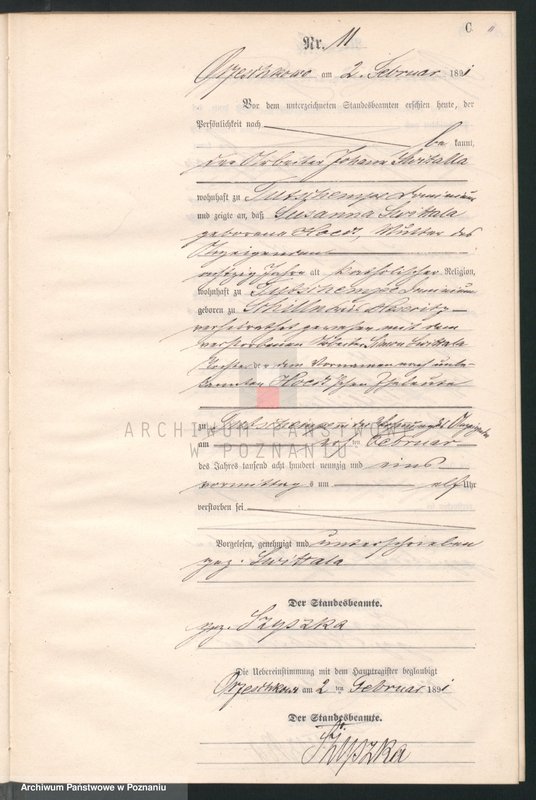 C.
Nr. 11
Orzeschkowo am 2. Februar 1891
Vor dem unterzeichneten Standesbeamten erschien heute, der
Persönlichkeit nach
be kannt,
der Arbeiter Johann Switalla
wohnhaft zu Gutschempe Dominium
und zeigte an, daß Susanna Switala
geborene Kocz, Mutter des
Anzeigenden
achtzig Jahre alt katholischer Religion,
wohnhaft zu Gutschempe Dominium
geboren zu
verheirathet gewesen mit dem
verstorbenen Arbeiter Simon Switalla
Tochter der dem Vornamen nach unbe-
kannten Kocz'schen Eheleute
zu Gutschempe in des Anzeigenden
am ten Februar
des Jahres tausend acht hundert neunzig und eins
vormittag s um elf Uhr
verstorben sei
Vorgelesen, genehmigt und unterschrieben
gez. Switala
Der Standesbeamte.
gez. Szyszka
Die Uebereinstimmung mit dem Hauptregister beglaubigt
Orzeschkowo am 2 ten Februar 1891
Der Standesbeamte.
Szyszka
ARCHIWUM PAŃSTWOWE
W POZNANIU
Archiwum Państwowe w Poznaniu